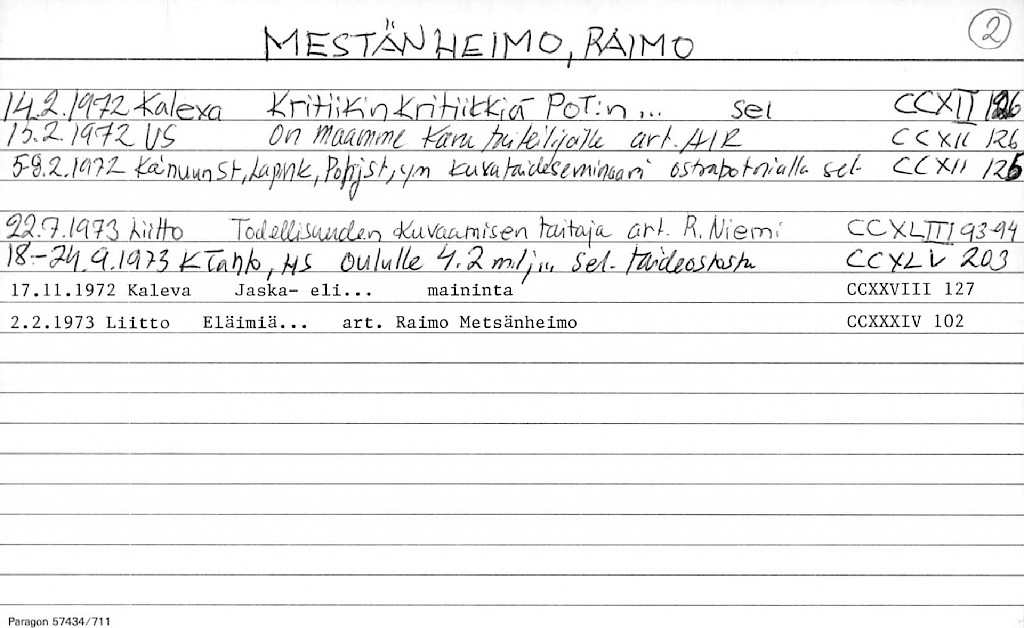 MESTÄNHEIMO, RAIMO
2
14.2.1972 Kaleva Kritiikin kritiikkiä POT:n ... sel CCXII 126
15.2.1972 US On maamme karu taiteilijalle art. AIR CCXII 126
5-9.2.1972 Kainuun St, Lapink, Pohjst, ym kuvataideseminaari ostrabotnialla sel. CCXII 125
22.7.1973 Liitto Todellisuuden kuvaamisen taitaja art. R. Niemi CCXLIII 93-94
18.-24.9.1973 K Tahto, HS Oululle 4.2 milj... sel. taideostosta CCXLV 203
17.11.1972 Kaleva Jaska- eli... maininta CCXXVIII 127
2.2.1973 Liitto Eläimiä... art. Raimo Metsänheimo CCXXXIV 102
Paragon 57434/711